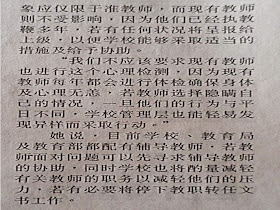 象应仅限于准教师，而现有教师
则不受影响，因为他们已经执教
鞭多年，若有任何状况将呈报给
上级，以便学校能够采取适当的
措施及给予协助。
“我们不应该要求现有教师
也进行这个心理检测，因为现有
教师每年都会进行体检确保身体
及心理无恙，若教师选择隐瞒自
己的情况，一旦他们的行为与平
日不同，学校管理层也能轻易发
现异样而采取行动。”
她说，目前学校、教育局
及教育部都配有辅导教师，若教
师面对问题可以先寻求辅导教师
的协助，同时学校也将酌量减轻
有关教师的职务以减轻他们的压
力，若有必要将停下教职转任文
书工作。